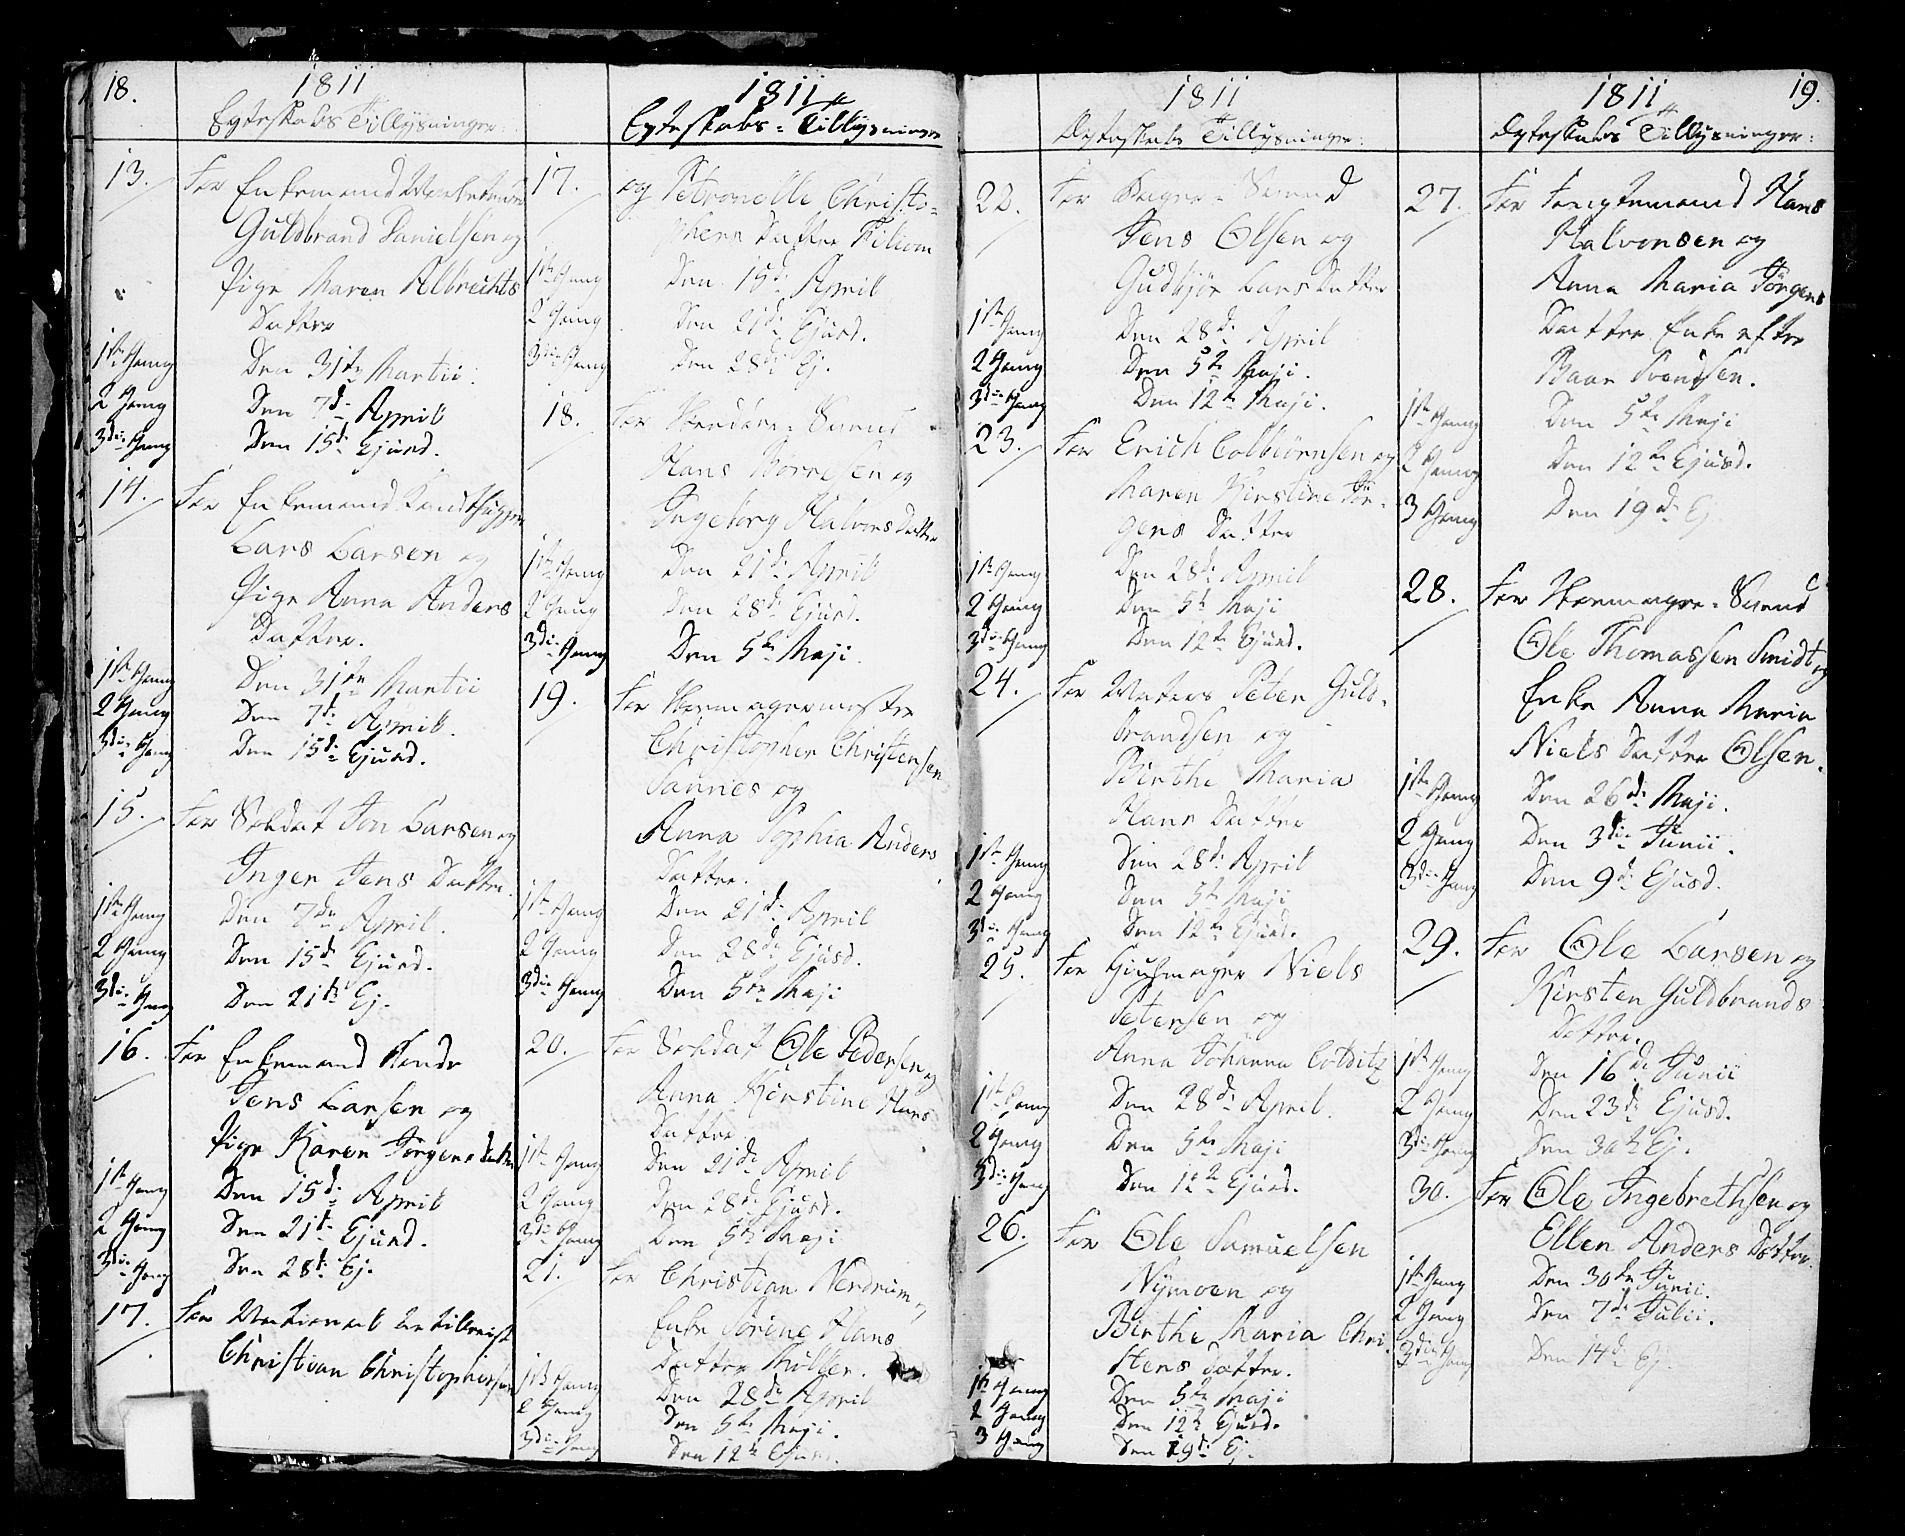 18.
1811
Egteskabs Tillysninger:
13. For Enkemand
Guldbrand Danielsen og
Pige Maren Albrechts
Datter
1ste Gang Den 31te Martii.
2 Gang Den 7de April
3die Gang Den 15de Ejusd.
14. For Enkemand
Lars Larsen og
Pige Anna Anders
Datter.
1ste Gang Den 31te Martii
2 Gang Den 7de April.
3die Gang Den 15de Ejusd.
15. For Soldat Jon Larsen og
Inger Jens Datter.
1ste Gang Den 7de April.
2 Gang Den 15de Ejusd.
3die Gang Den 21de Ej.
16. For Enkemand
Jens Larsen og
Pige Karen Jørgens Datter
1ste Gang Den 15de April
2 Gang Den 21de Ejusd.
3die Gang Den 28de Ej.
17. For National Artillerist
Christian Christophersen
1811
Egteskabs-Tillysninger
17. og Petronelle Christo-
phers Datter
1ste Gang Den 15de April
2 Gang Den 21de Ejusd.
3die Gang Den 28de Ej.
18. For Svend
Hans Borresen og
Ingeborg Halvors Datter
1ste Gang Den 21de April
2 Gang Den 28de Ejusd.
3die Gang Den 5te Maji.
19. For
Christopher Christensen
og
Anna Sophia Anders
Datter.
1ste Gang Den 21de April
2 Gang Den 28de Ejusd.
3die Gang Den 5te Maji
20. For Soldat Ole Pedersen og
Anna Kirstine Hans
Datter
1ste Gang Den 21de April
2 Gang Den 28de Ejusd.
3die Gang Den 5te Maji
21. For Christian Nerdrum og
Enke Sørine Hans
Datter Møller.
1ste Gang Den 28de April
2 Gang Den 5te Maji.
3die Gang Den 12te Ejusd.
1811
Egteskabs Tillysninger:
22. For Svend
Jens Olsen og
Gudbjør Lars Datter
1ste Gang Den 28de April
2 Gang Den 5te Maji.
3die Gang Den 12te Maji.
23. For Erich Colbiørnsen og
Maren Kirstine Jør-
gens Datter
1ste Gang Den 28de April
2 Gang Den 5te Maji
3die Gang Den 12te Ejusd.
24. For Matros Peter Guld-
brandsen og
Birthe Maria
Hans Datter
1ste Gang Den 28de April
2 Gang Den 5te Maji
3die Gang Den 12te Ejusd.
25. For Hjulmager Niels
Petersen og
Anna Johanna Colditz
1ste Gang Den 28de April.
2 Gang Den 5te Maji
3die Gang Den 12te Ejusd.
26. For Ole Samuelsen
Nymoen og
Birthe Maria Chri-
stens Datter.
1te Gang Den 5te Maji
2 Gang Den 12te Ejusd.
3 Gang Den 19de Ej.
1811
19.
Egteskabs Tillysninger:
27. For Hans
Halvorsen og
Anna Maria Jørgens
Datter Enke efter
Svendsen.
1ste Gang Den 5te Maji
2 Gang Den 12te Ejusd.
3 Gang Den 19de Ej
28. For Svend
Ole Thomassen Smidt og
Enke Anna Maria
Niels Datter Olsen.
1ste Gang Den 26de Maji.
2 Gang Den 3die Junii.
3die Gang Den 9de Ejusd.
29. For Ole Larsen og
Kirsten Guldbrands
Datter.
1ste Gang Den 16de Junii
2 Gang Den 23de Ejusd.
3die Gang Den 30te Ej.
30. For Ole Ingebrethsen og
Ellen Anders Datter.
1ste Gang Den 30te Junii.
2 Gang Den 7de Julii.
3die Gang Den 14de Ej.